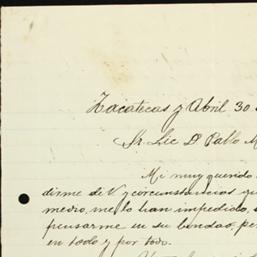 Zacatecas y Abril 30
Sr Lic Dn Pablo M
Mi muy querido
dirme de V y circunstancias q
medio, me lo han impedido,
pensarme en su bondad, pe
en todo y por todo.